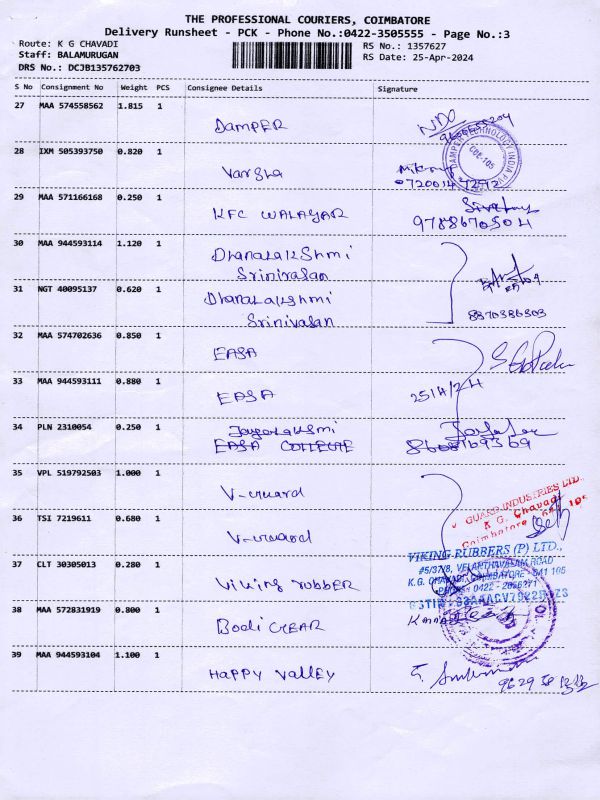 THE PROFESSIONAL COURIERS, COIMBATORE
Delivery Runsheet - PCK - Phone No.:0422-3505555 - Page No.:3
Route: K G CHAVADI
RS No.: 1357627
Staff: BALAMURUGAN
RS Date: 25-Apr-2024
DRS No.: DCJB135762703
S No Consignment No Weight PCS Consignee Details Signature
27 MAA 574558562 1.815 1
DAMPER
28 IXM 505393750 0.820 1
Varsha
DAMPER TECHNOLOGY INDIA
CBE-105
29 MAA 571166168 0.250 1
KFC WALAYAR
9788670504
30 MAA 944593114 1.120 1
Dhanalakshmi
Srinivasan
31 NGT 40095137 0.620 1
Dhanalakshmi
Srinivasan
8870386503
32 MAA 574702636 0.850 1
EASA
33 MAA 944593111 0.880 1
EASA
25/4/24
34 PLN 2310054 0.250 1
EASA COLLEGE
35 VPL 519792503 1.000 1
V-Guard
GUARD INDUSTRIES LTD.,
K G. Chavadi
Coimbatore 641 105
36 TSI 7219611 0.680 1
V-Guard
VIKING RUBBERS (P) LTD.,
37 CLT 30305013 0.280 1
#5/37/8, VELANTHAVALAM ROAD
K.G. CHAVADI, COIMBATORE - 641 105
Viking rubber
38 MAA 572831919 0.800 1
Bodi GEAR
39 MAA 944593104 1.100 1
HAPPY Valley